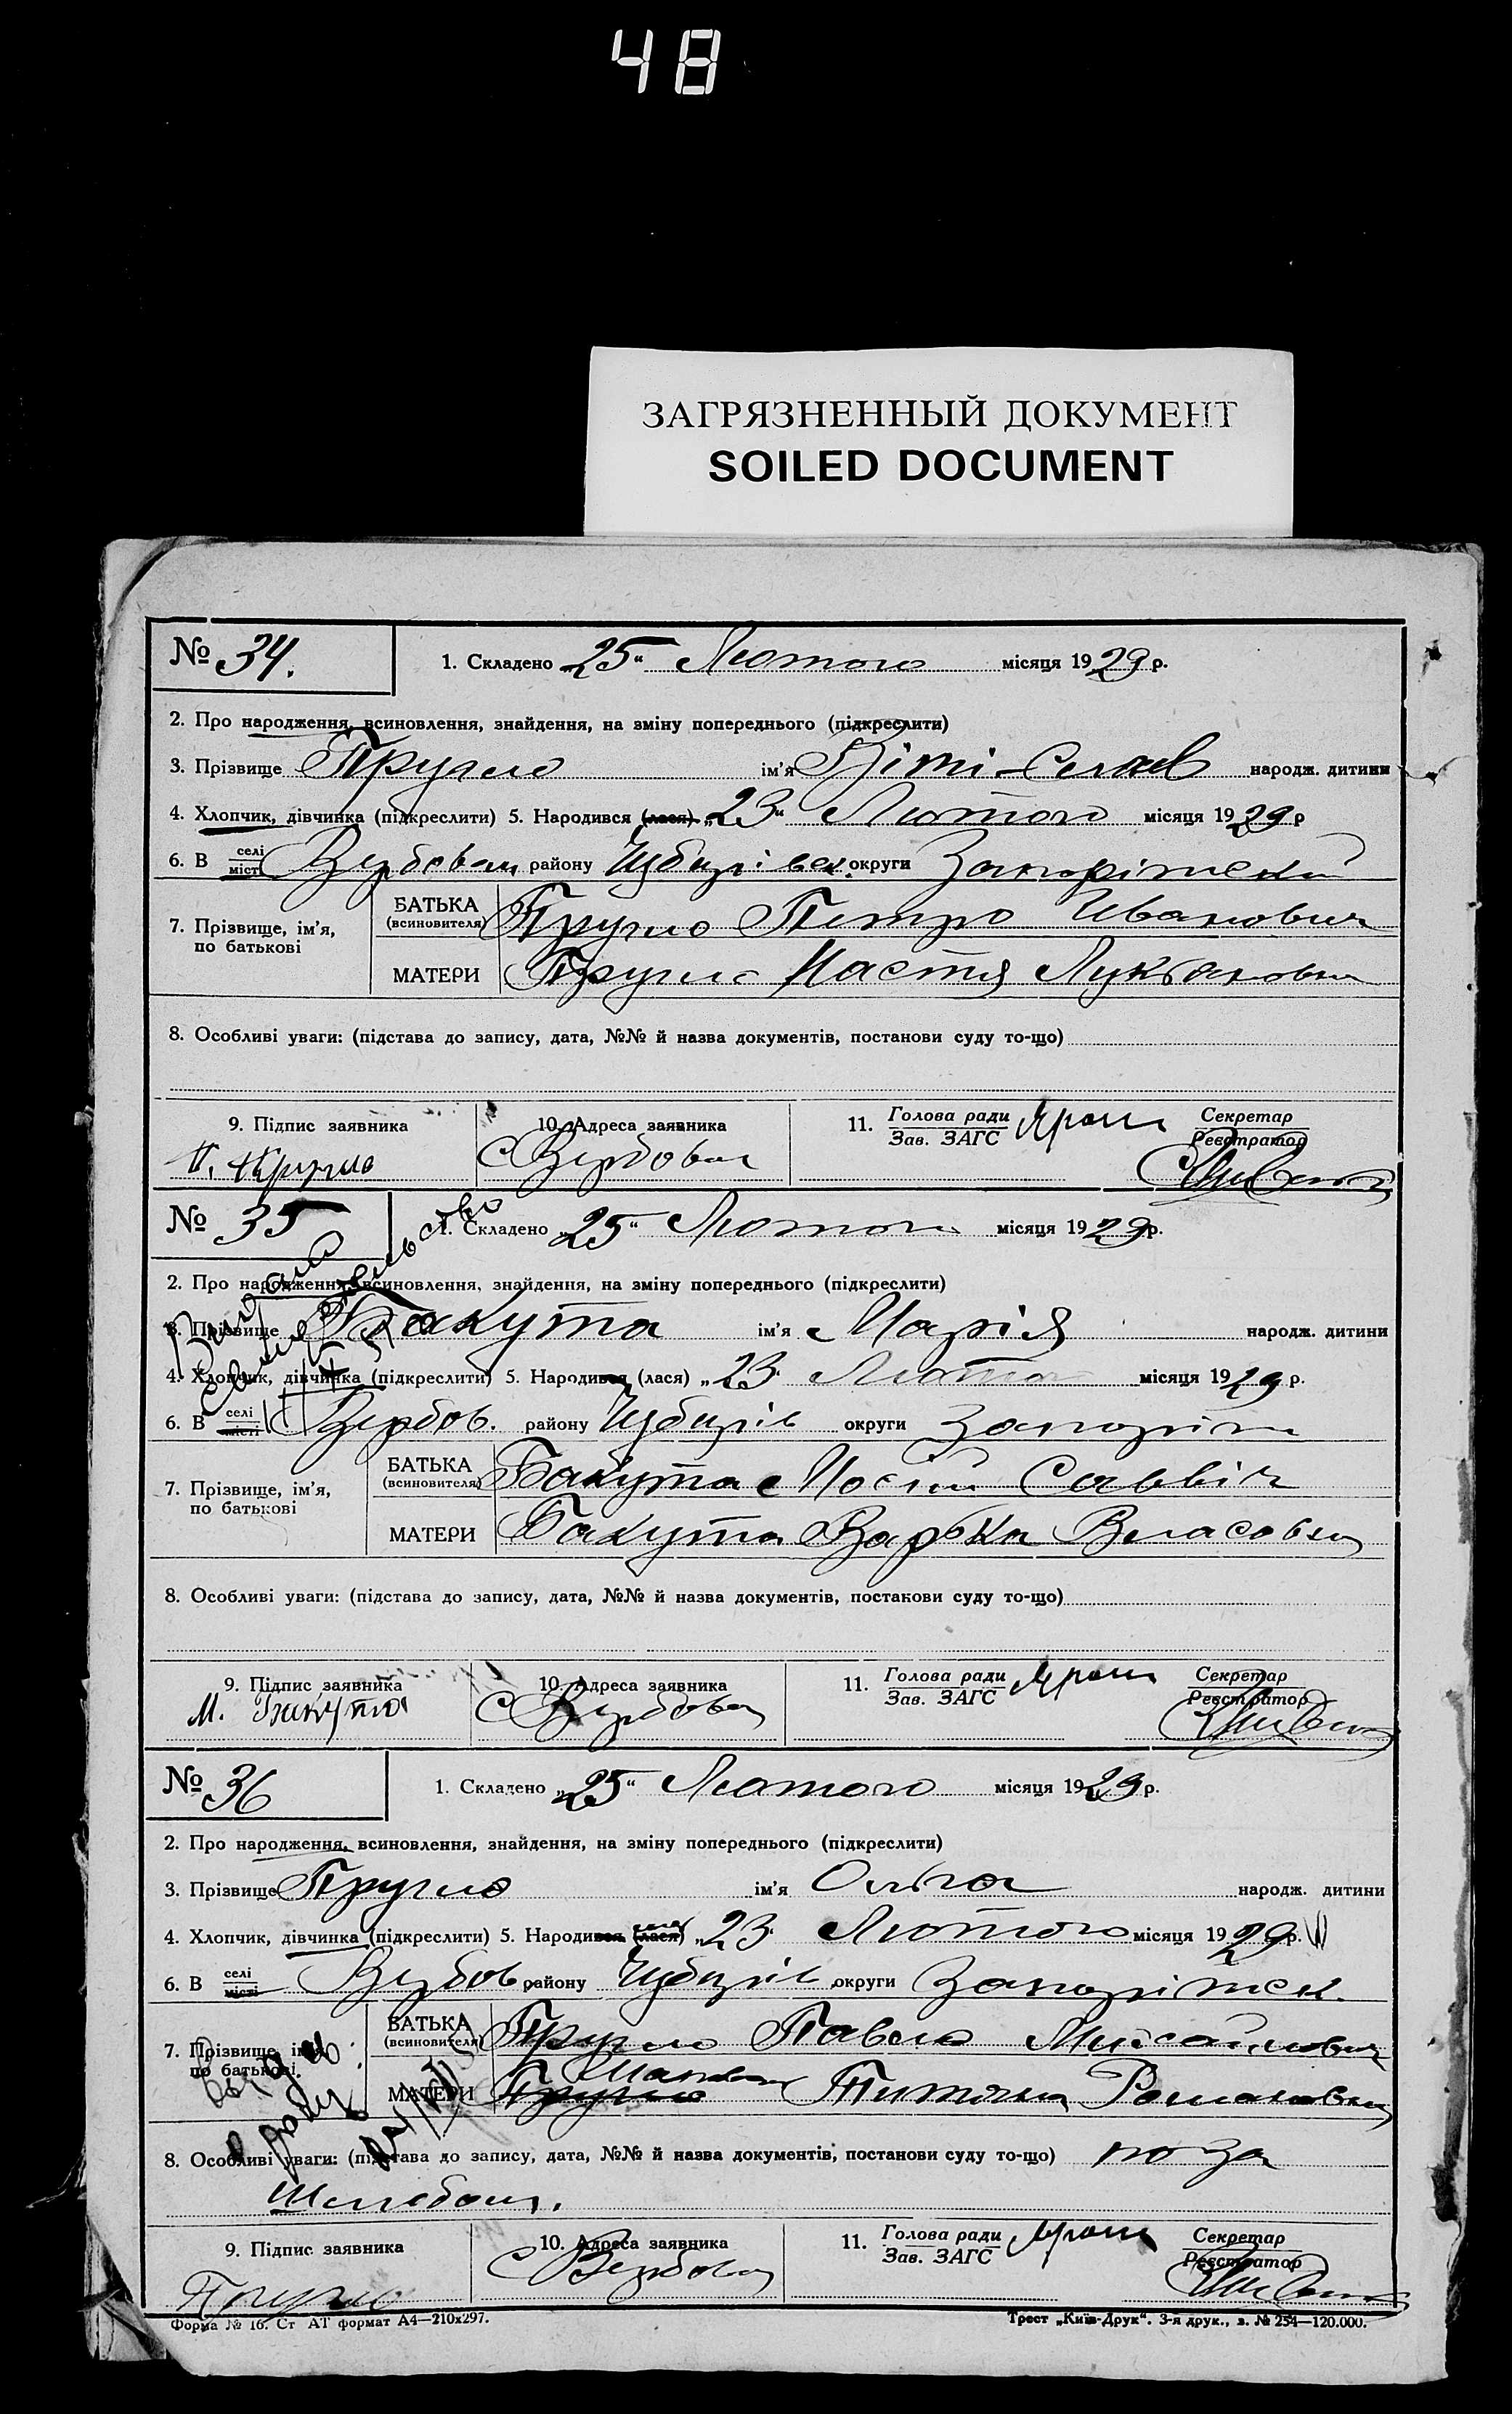 48
ЗАГРЯЗНЕННЫЙ ДОКУМЕНТ
SOILED DOCUMENT
№ 34. 1. Складено „25“ Лютого місяця 1929 р.
2. Про народження, всиновлення, знайдення, на зміну попереднього (підкреслити)
3. Прізвище Пругло ім'я Віті-Слав народж. дитини
4. Хлопчик, дівчинка (підкреслити) 5. Народився (лася) „23“ Лютого місяця 1929 р
6. В селі місті району округи
7. Прізвище, ім'я, по батькові БАТЬКА (всиновителя) Пругло Петро Иванович
МАТЕРИ Пругло Настя Лукьяновна
8. Особливі уваги: (підстава до запису, дата, №№ й назва документів, постанови суду то-що)
9. Підпис заявника 10. Адреса заявника 11. Голова ради Зав. ЗАГС Секретар Реєстратор
П. Пругло с Вербова
№ 35 1. Складено „25“ Лютого місяця 1929 р.
2. Про народження, всиновлення, знайдення, на зміну попереднього (підкреслити)
3. Прізвище Бакута ім'я Марія народж. дитини
4. Хлопчик, дівчинка (підкреслити) 5. Народився (лася) „23 місяця 1929 р.
6. В селі місті Вербов. району округи
7. Прізвище, ім'я, по батькові БАТЬКА (всиновителя) Бакута Мосій Саввіч
МАТЕРИ Бакута Варька Власовна
8. Особливі уваги: (підстава до запису, дата, №№ й назва документів, постанови суду то-що)
9. Підпис заявника 10. Адреса заявника 11. Голова ради Зав. ЗАГС Секретар Реєстратор
М. Бакута с Вербова
№ 36 1. Складено „25“ Лютого місяця 1929 р.
2. Про народження, всиновлення, знайдення, на зміну попереднього (підкреслити)
3. Прізвище Пругло ім'я Ольга народж. дитини
4. Хлопчик, дівчинка (підкреслити) 5. Народився (лася) „23 Лютого місяця 1929 р.
6. В селі місті Вербов району округи Запоріжск.
7. Прізвище, ім'я, по батькові БАТЬКА (всиновителя) Пругло Павло
МАТЕРИ Пругло Титяна Романовна
8. Особливі уваги: (підстава до запису, дата, №№ й назва документів, постанови суду то-що) по за
шлюбом.
9. Підпис заявника 10. Адреса заявника 11. Голова ради Зав. ЗАГС Секретар Реєстратор
Пругло с Вербова
Форма № 16. Ст АТ формат А4—210х297. Трест „Київ-Друк“. 3-я друк., з. № 254—120.000.